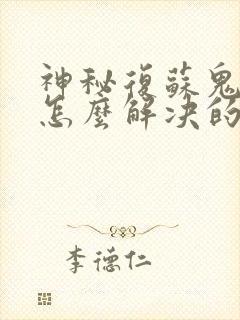 神秘復蘇鬼
怎麼解决的
李德仁